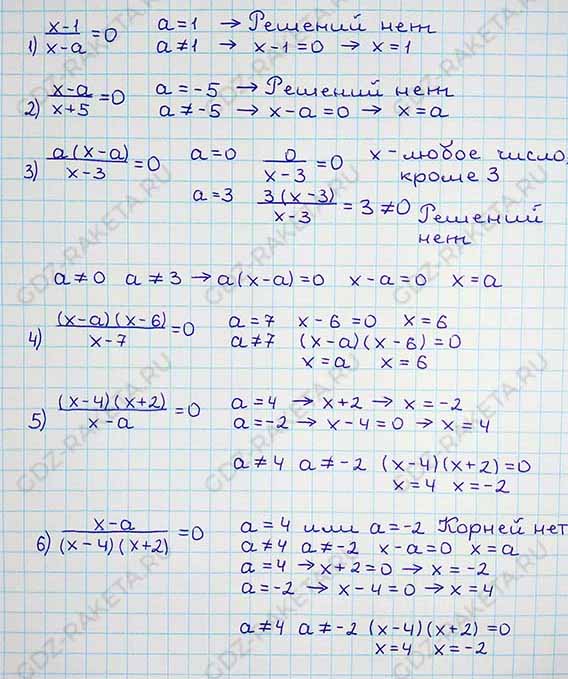 1) (x-1)/(x-a) =0 a=1 → Решений нет
a≠1 → x-1=0 → x=1
2) (x-a)/(x+5) =0 a=-5 → Решений нет
a≠-5 → x-a=0 → x=a
3) a(x-a)/(x-3) =0 a=0 0/(x-3) =0 x-любое число,
кроме 3
a=3 3(x-3)/(x-3) = 3 ≠0 Решений
нет
a≠0 a≠3 → a(x-a)=0 x-a=0 x=a
4) (x-a)(x-6)/(x-7) =0 a=7 x-6=0 x=6
a≠7 (x-a)(x-6)=0
x=a x=6
5) (x-4)(x+2)/(x-a) =0 a=4 → x+2 → x=-2
a=-2 → x-4=0 → x=4
a≠4 a≠-2 (x-4)(x+2)=0
x=4 x=-2
6) (x-a)/((x-4)(x+2)) =0 a=4 или a=-2 Корней нет
a≠4 a≠-2 x-a=0 x=a
a=4 → x+2=0 → x=-2
a=-2 → x-4=0 → x=4
a≠4 a≠-2 (x-4)(x+2)=0
x=4 x=-2
GDZ-RAKETA.RU